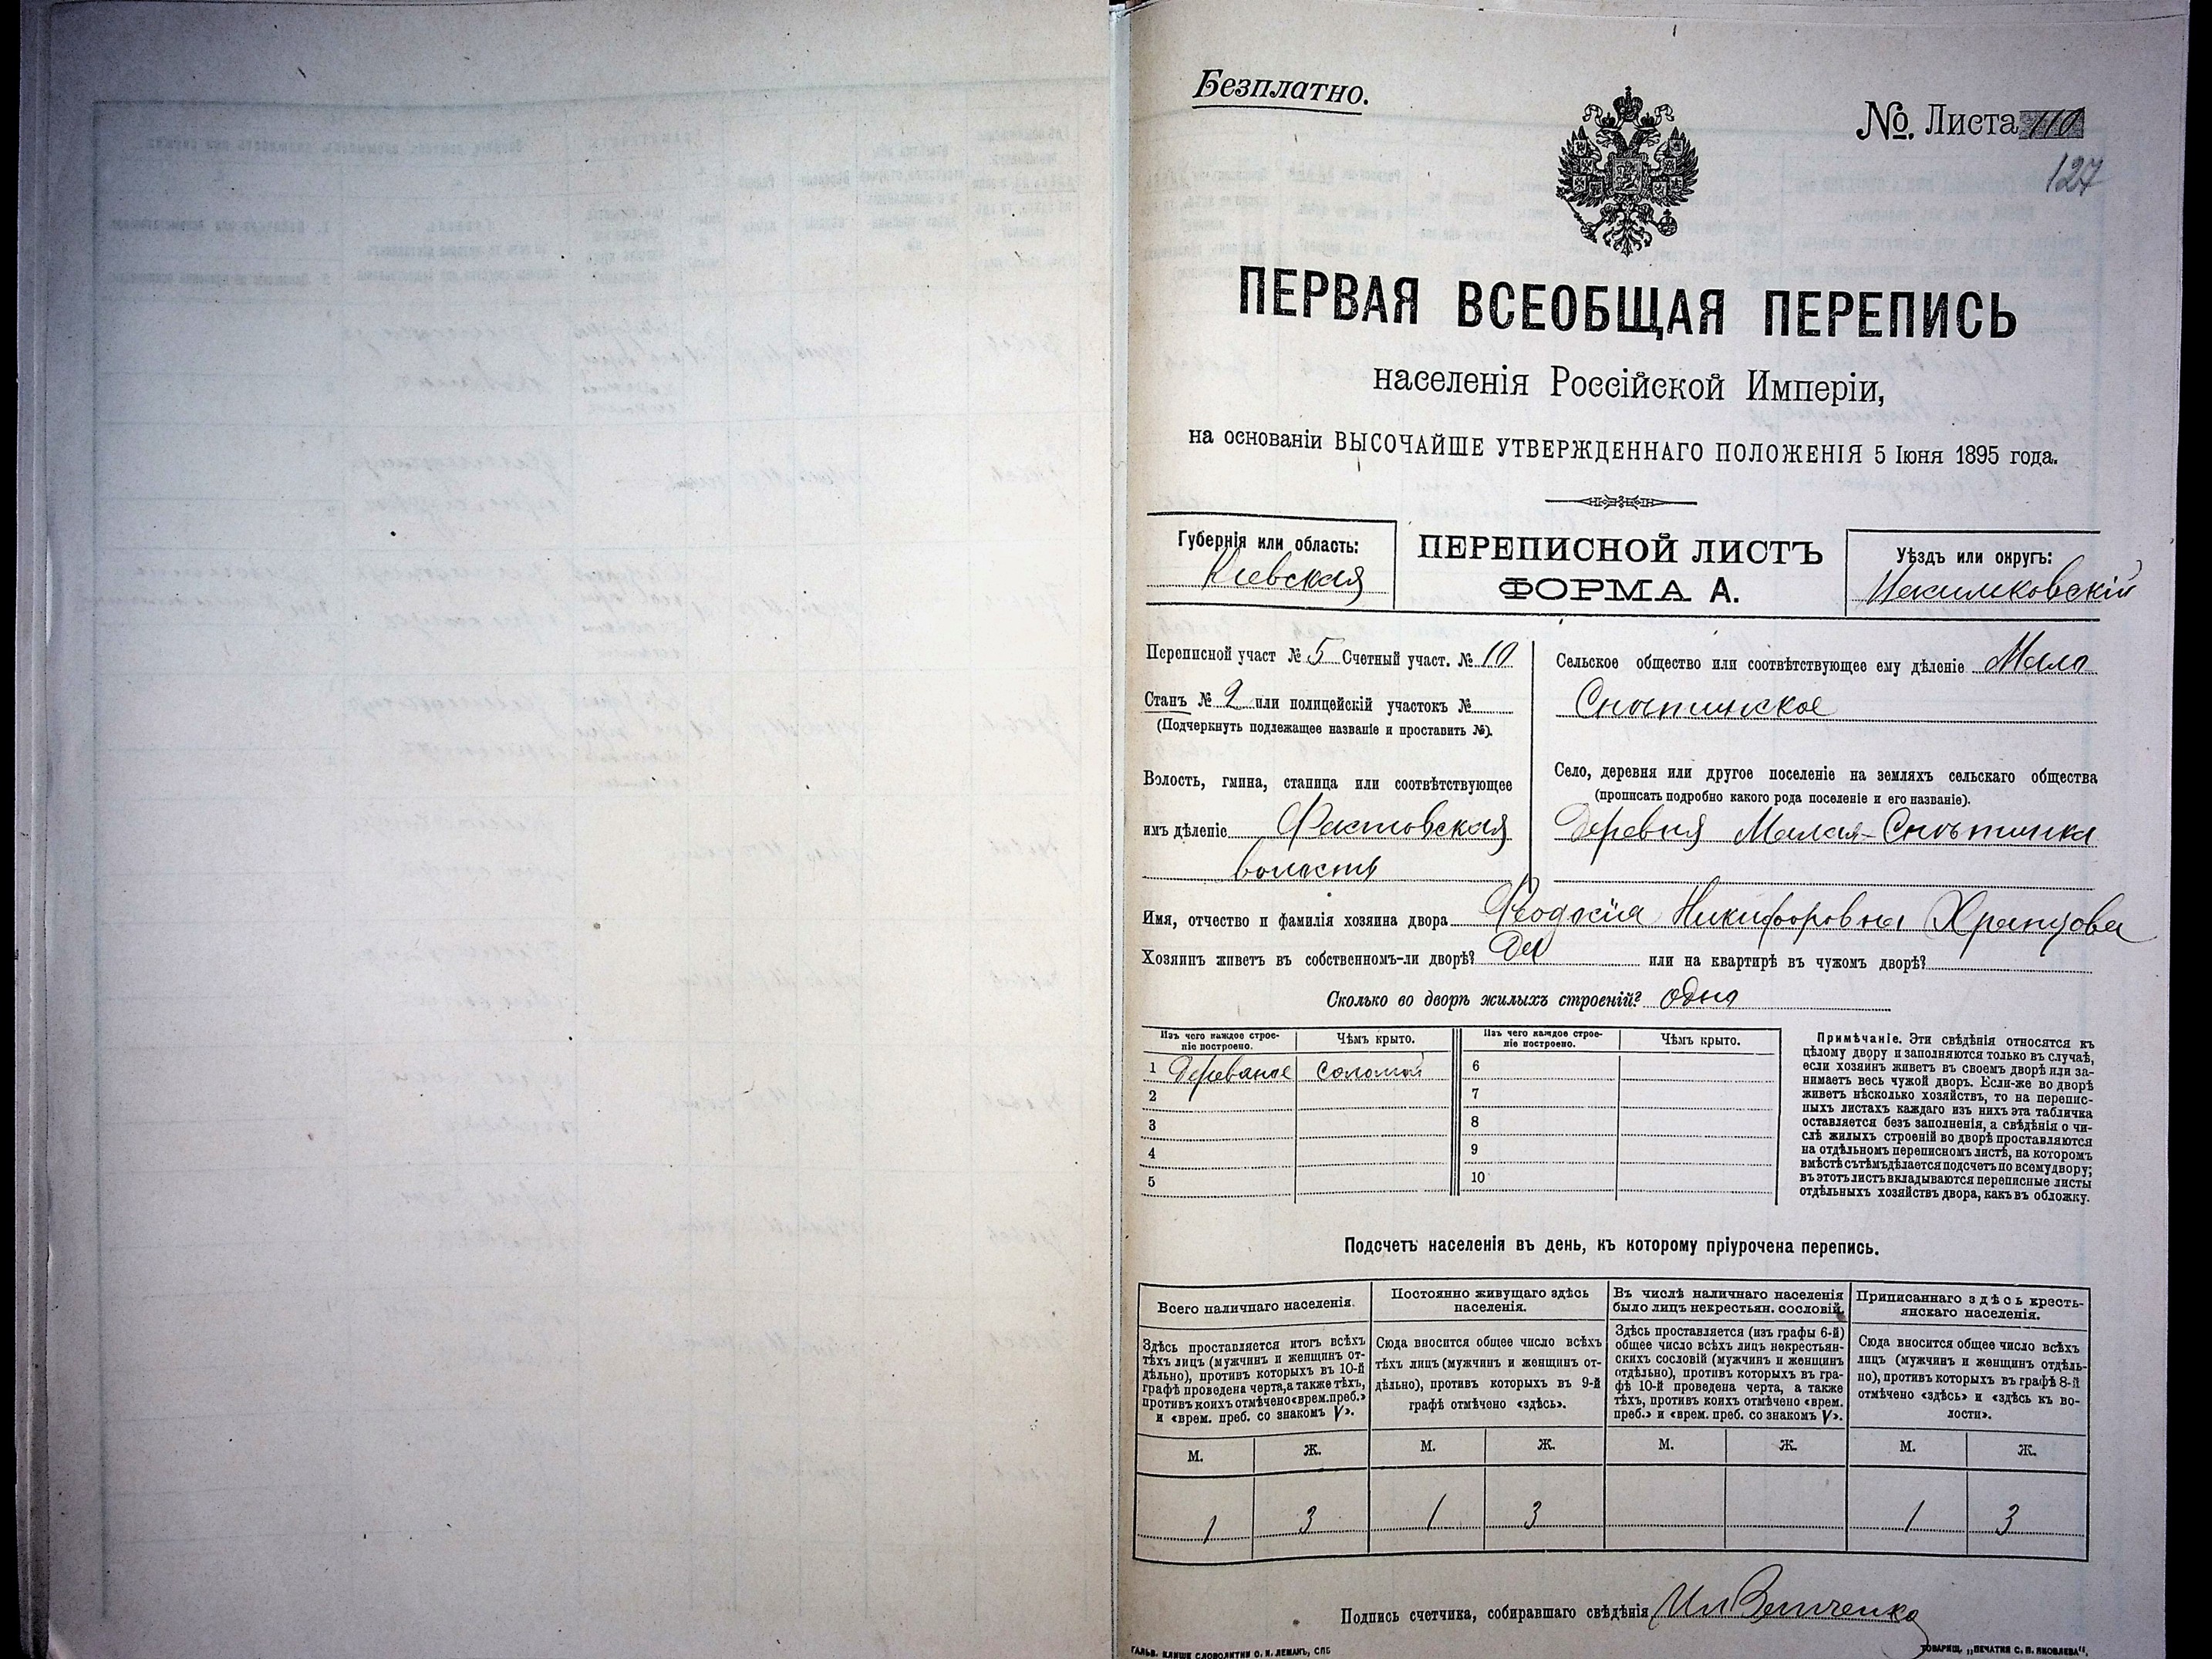 Безплатно.
№. Листа 110
127
ПЕРВАЯ ВСЕОБЩАЯ ПЕРЕПИСЬ
населенія Россійской Имперіи,
на основаніи ВЫСОЧАЙШЕ УТВЕРЖДЕННАГО ПОЛОЖЕНІЯ 5 Іюня 1895 года.
Губернія или область:
Кіевская
ПЕРЕПИСНОЙ ЛИСТЪ
ФОРМА А.
Уѣздъ или округъ:
Переписной участ № 5 Счетный участ. № 10
Станъ № 2 или полицейскій участокъ №
(Подчеркнуть подлежащее названіе и проставить №).
Волость, гмина, станица или соотвѣтствующее
имъ дѣленіе Фастовская
волость
Сельское общество или соотвѣтствующее ему дѣленіе Мало
Снѣтинское
Село, деревня или другое поселеніе на земляхъ сельскаго общества
(прописать подробно какого рода поселеніе и его названіе).
Деревня Малая-Снѣтинка
Имя, отчество и фамилія хозяина двора Никифоровна
Хозяинъ живетъ въ собственномъ-ли дворѣ? Да или на квартирѣ въ чужомъ дворѣ?
Сколько во дворѣ жилыхъ строеній? одно
Изъ чего каждое строе-
ніе построено.
Чѣмъ крыто.
Изъ чего каждое строе-
ніе построено.
Чѣмъ крыто.
1 Деревяное соломой
2
3
4
5
6
7
8
9
10
Примѣчаніе. Эти свѣдѣнія относятся къ
цѣлому двору и заполняются только въ случаѣ,
если хозяинъ живетъ въ своемъ дворѣ или за-
нимаетъ весь чужой дворъ. Если-же во дворѣ
живетъ нѣсколько хозяйствъ, то на перепис-
ныхъ листахъ каждаго изъ нихъ эта табличка
оставляется безъ заполненія, а свѣдѣнія о чи-
слѣ жилыхъ строеній во дворѣ проставляются
на отдѣльномъ переписномъ листѣ, на которомъ
вмѣстѣ съ тѣмъ дѣлается подсчетъ по всему двору;
въ этотъ листъ вкладываются переписные листы
отдѣльныхъ хозяйствъ двора, какъ въ обложку.
Подсчетъ населенія въ день, къ которому пріурочена перепись.
Всего наличнаго населенія.
Здѣсь проставляется итогъ всѣхъ
тѣхъ лицъ (мужчинъ и женщинъ от-
дѣльно), противъ которыхъ въ 10-й
графѣ проведена черта, а также тѣхъ,
противъ коихъ отмѣчено «врем. преб.»
и «врем. преб. со знакомъ V».
Постоянно живущаго здѣсь
населенія.
Сюда вносится общее число всѣхъ
тѣхъ лицъ (мужчинъ и женщинъ от-
дѣльно), противъ которыхъ въ 9-й
графѣ отмѣчено «здѣсь».
Въ числѣ наличнаго населенія
было лицъ некрестьян. сословій.
Здѣсь проставляется (изъ графы 6-й)
общее число всѣхъ лицъ некрестьян-
скихъ сословій (мужчинъ и женщинъ
отдѣльно), противъ которыхъ въ гра-
фѣ 10-й проведена черта, а также
тѣхъ, противъ коихъ отмѣчено «врем.
преб.» и «врем. преб. со знакомъ V».
Приписаннаго здѣсь кресть-
янскаго населенія.
Сюда вносится общее число всѣхъ
лицъ (мужчинъ и женщинъ отдѣль-
но), противъ которыхъ въ графѣ 8-й
отмѣчено «здѣсь» и «здѣсь къ во-
лости».
М. Ж. М. Ж. М. Ж. М. Ж.
1 3 1 3 1 3
Подпись счетчика, собиравшаго свѣдѣнія
ГАЛЬВ. КЛИШЕ СЛОВОЛИТНИ О. И. ЛЕМАНЪ, СПБ
ТОВАРИЩ. „ПЕЧАТНЯ С. П. ЯКОВЛЕВА".